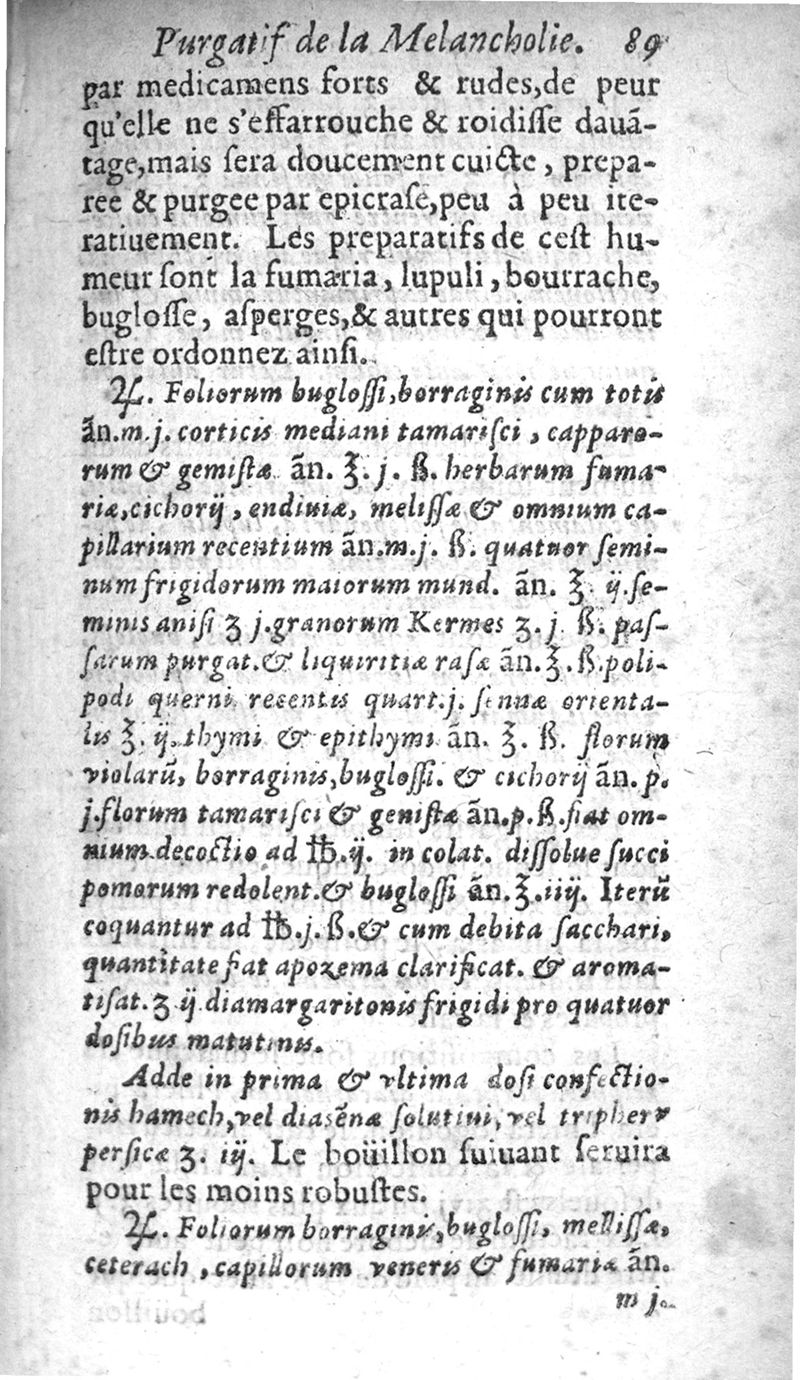 Purgatif de la Melancholie. 89
par medicamens forts & rudes,de peur
qu'elle ne s'effarrouche & roidiſſe dauā-
tage,mais ſera doucement cuicte, prepa-
ree & purgee par epicraſe,peu à peu ite-
ratiuement. Les preparatifs de ceſt hu-
meur ſont la fumaria, lupuli, bourrache,
bugloſſe, aſperges,& autres qui pourront
eſtre ordonnez ainſi.
℞. Foliorum bugloſſi,borraginis cum totis
ān.m.j. corticis mediani tamariſci, cappare-
rum & geniſtæ ān. ℥. j. ß. herbarum fuma-
riæ,cichorij, endiuiæ, meliſſæ & omnium ca-
pillarium recentium ān.m.j. ß. quatuor ſemi-
num frigidorum maiorum mund. ān. ℥ ij.ſe-
minis aniſi ʒ j.granorum Kermes ʒ. j. ß. paſ-
ſarum purgat.& liquiritiæ raſæ ān.℥.ß.poli-
podi querni recentis quart.j. ſennæ orienta-
lis ℥. ij. thymi & epithymi ān. ℥. ß. florum
violarū, borraginis,bugloſſi. & cichorij ān. p.
j.florum tamariſci & geniſtæ ān.p.ß.fiat om-
nium decoctio ad ℔.ij. in colat. diſſolue ſucci
pomorum redolent.& bugloſſi ān.℥.iiij. Iterū
coquantur ad ℔.j. ß.& cum debita ſacchari,
quantitate fiat apozema clarificat. & aroma-
tiſat. ʒ ij diamargaritonis frigidi pro quatuor
doſibus matutinis.
Adde in prima & vltima doſi confectio-
nis hamech,vel diasēnæ ſolutiui, vel tripheræ
perſicæ ʒ. iij. Le boüillon ſuiuant ſeruira
pour les moins robuſtes.
℞. Foliorum borraginis,bugloſſi, melliſſæ,
ceterach, capillorum veneris & fumariæ ān.
m j.